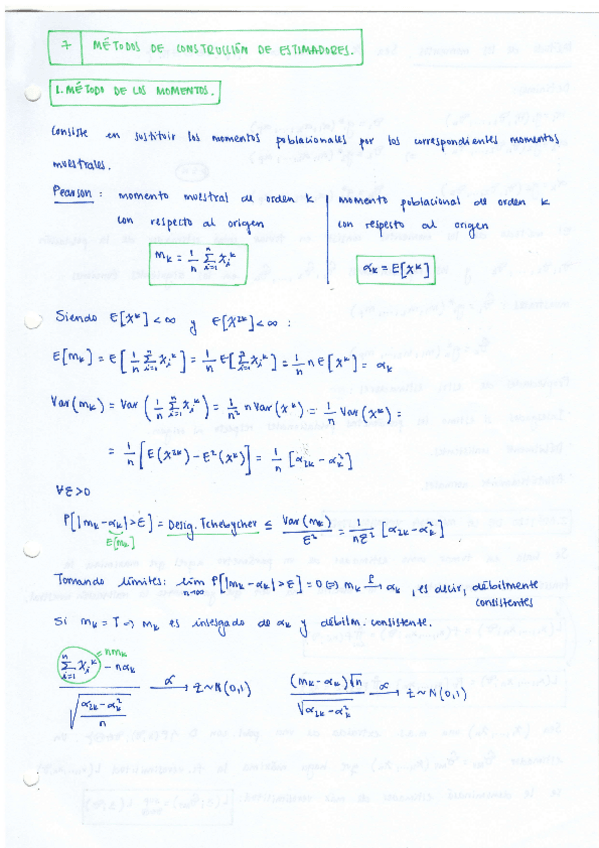 7 MÉTODOS DE CONSTRUCCIÓN DE ESTIMADORES.
1. MÉTODO DE LOS MOMENTOS.
Consiste en sustituir los momentos poblacionales por los correspondientes momentos
muestrales.
Pearson: momento muestral de orden k | momento poblacional de orden k
con respecto al origen | con respecto al origen
m_k = 1/n Σ_{i=1}^n X_i^k | α_k = E[X^k]
Siendo E[X^k] < ∞ y E[X^{2k}] < ∞ :
E[m_k] = E[1/n Σ_{i=1}^n X_i^k] = 1/n E[Σ_{i=1}^n X_i^k] = 1/n n E[X^k] = α_k
Var(m_k) = Var(1/n Σ_{i=1}^n X_i^k) = 1/n² n Var(X^k) = 1/n Var(X^k) =
= 1/n [E(X^{2k}) - E²(X^k)] = 1/n [α_{2k} - α_k²]
∀ε>0
P[|m_k - α_k| > ε] = Desig. Tchebycher ≤ Var(m_k)/ε² = 1/(nε²) [α_{2k} - α_k²]
E[m_k]
Tomando límites: lim_{n→∞} P[|m_k - α_k| > ε] = 0 ⇔ m_k →^P α_k, es decir, débilmente
consistentes
Si m_k = T → m_k es insesgado de α_k y débilm. consistente.
(Σ_{i=1}^n X_i^k - nα_k) / √((α_{2k} - α_k²)/n) →^α Z ~ N(0,1) (m_k - α_k)√n / √(α_{2k} - α_k²) →^α Z ~ N(0,1)
= nm_k